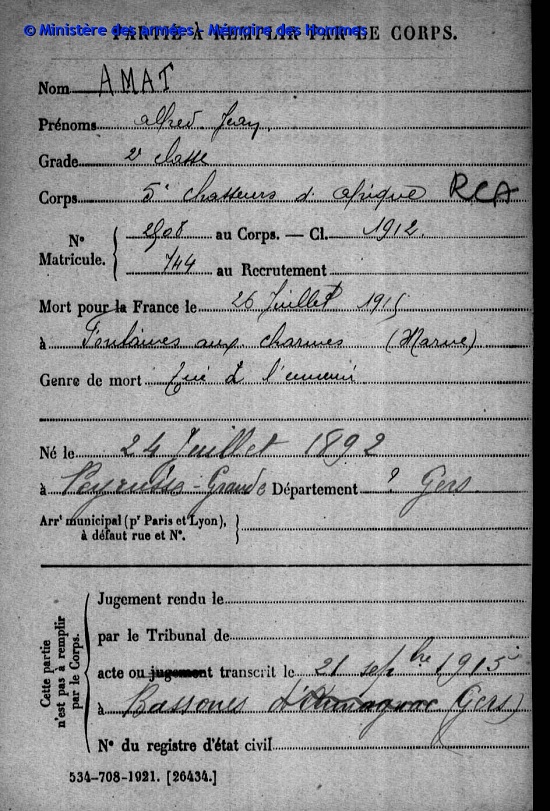 © Ministère des armées - Mémoire des Hommes
PARTIE À REMPLIR PAR LE CORPS.
Nom AMAT
Prénoms alfred Jean
Grade 2e classe
Corps 5e chasseurs d'afrique RCA
N° Matricule. { 2908 au Corps. — Cl. 1912.
744 au Recrutement
Mort pour la France le 26 Juillet 1915
à Fontaines aux charmes (Marne)
Genre de mort Tué à l'ennemi
Né le 24 Juillet 1892
à Peyrusse-Grande Département ? Gers
Arrt municipal (pr Paris et Lyon), à défaut rue et N°. }
Cette partie n'est pas à remplir par le Corps. {
Jugement rendu le
par le Tribunal de
acte ou jugement transcrit le 21 sepbre 1915
à Bassoues d'Armagnac (Gers)
N° du registre d'état civil
534-708-1921. [26434.]